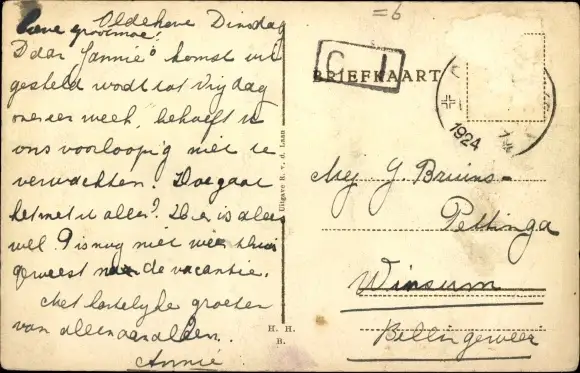 Oldehove Dinsdag
Lieve grootmoe!
Daar Jannie's komst uit
gesteld wordt tot Vrijdag
over een week, behoeft u
ons voorloopig niet te
verwachten. Hoe gaat
het met u alles? Hier is alles
wel. P is nog niet weer thuis
geweest na de vacantie.
Met hartelijke groeten
van allen aan allen.
Annie
=6
C J
BRIEFKAART
1924
Uitgave R. v. d. Laan
H. H.
B.
Mej. G. Bruins-
Pettinga
Winsum
Bellingeweer